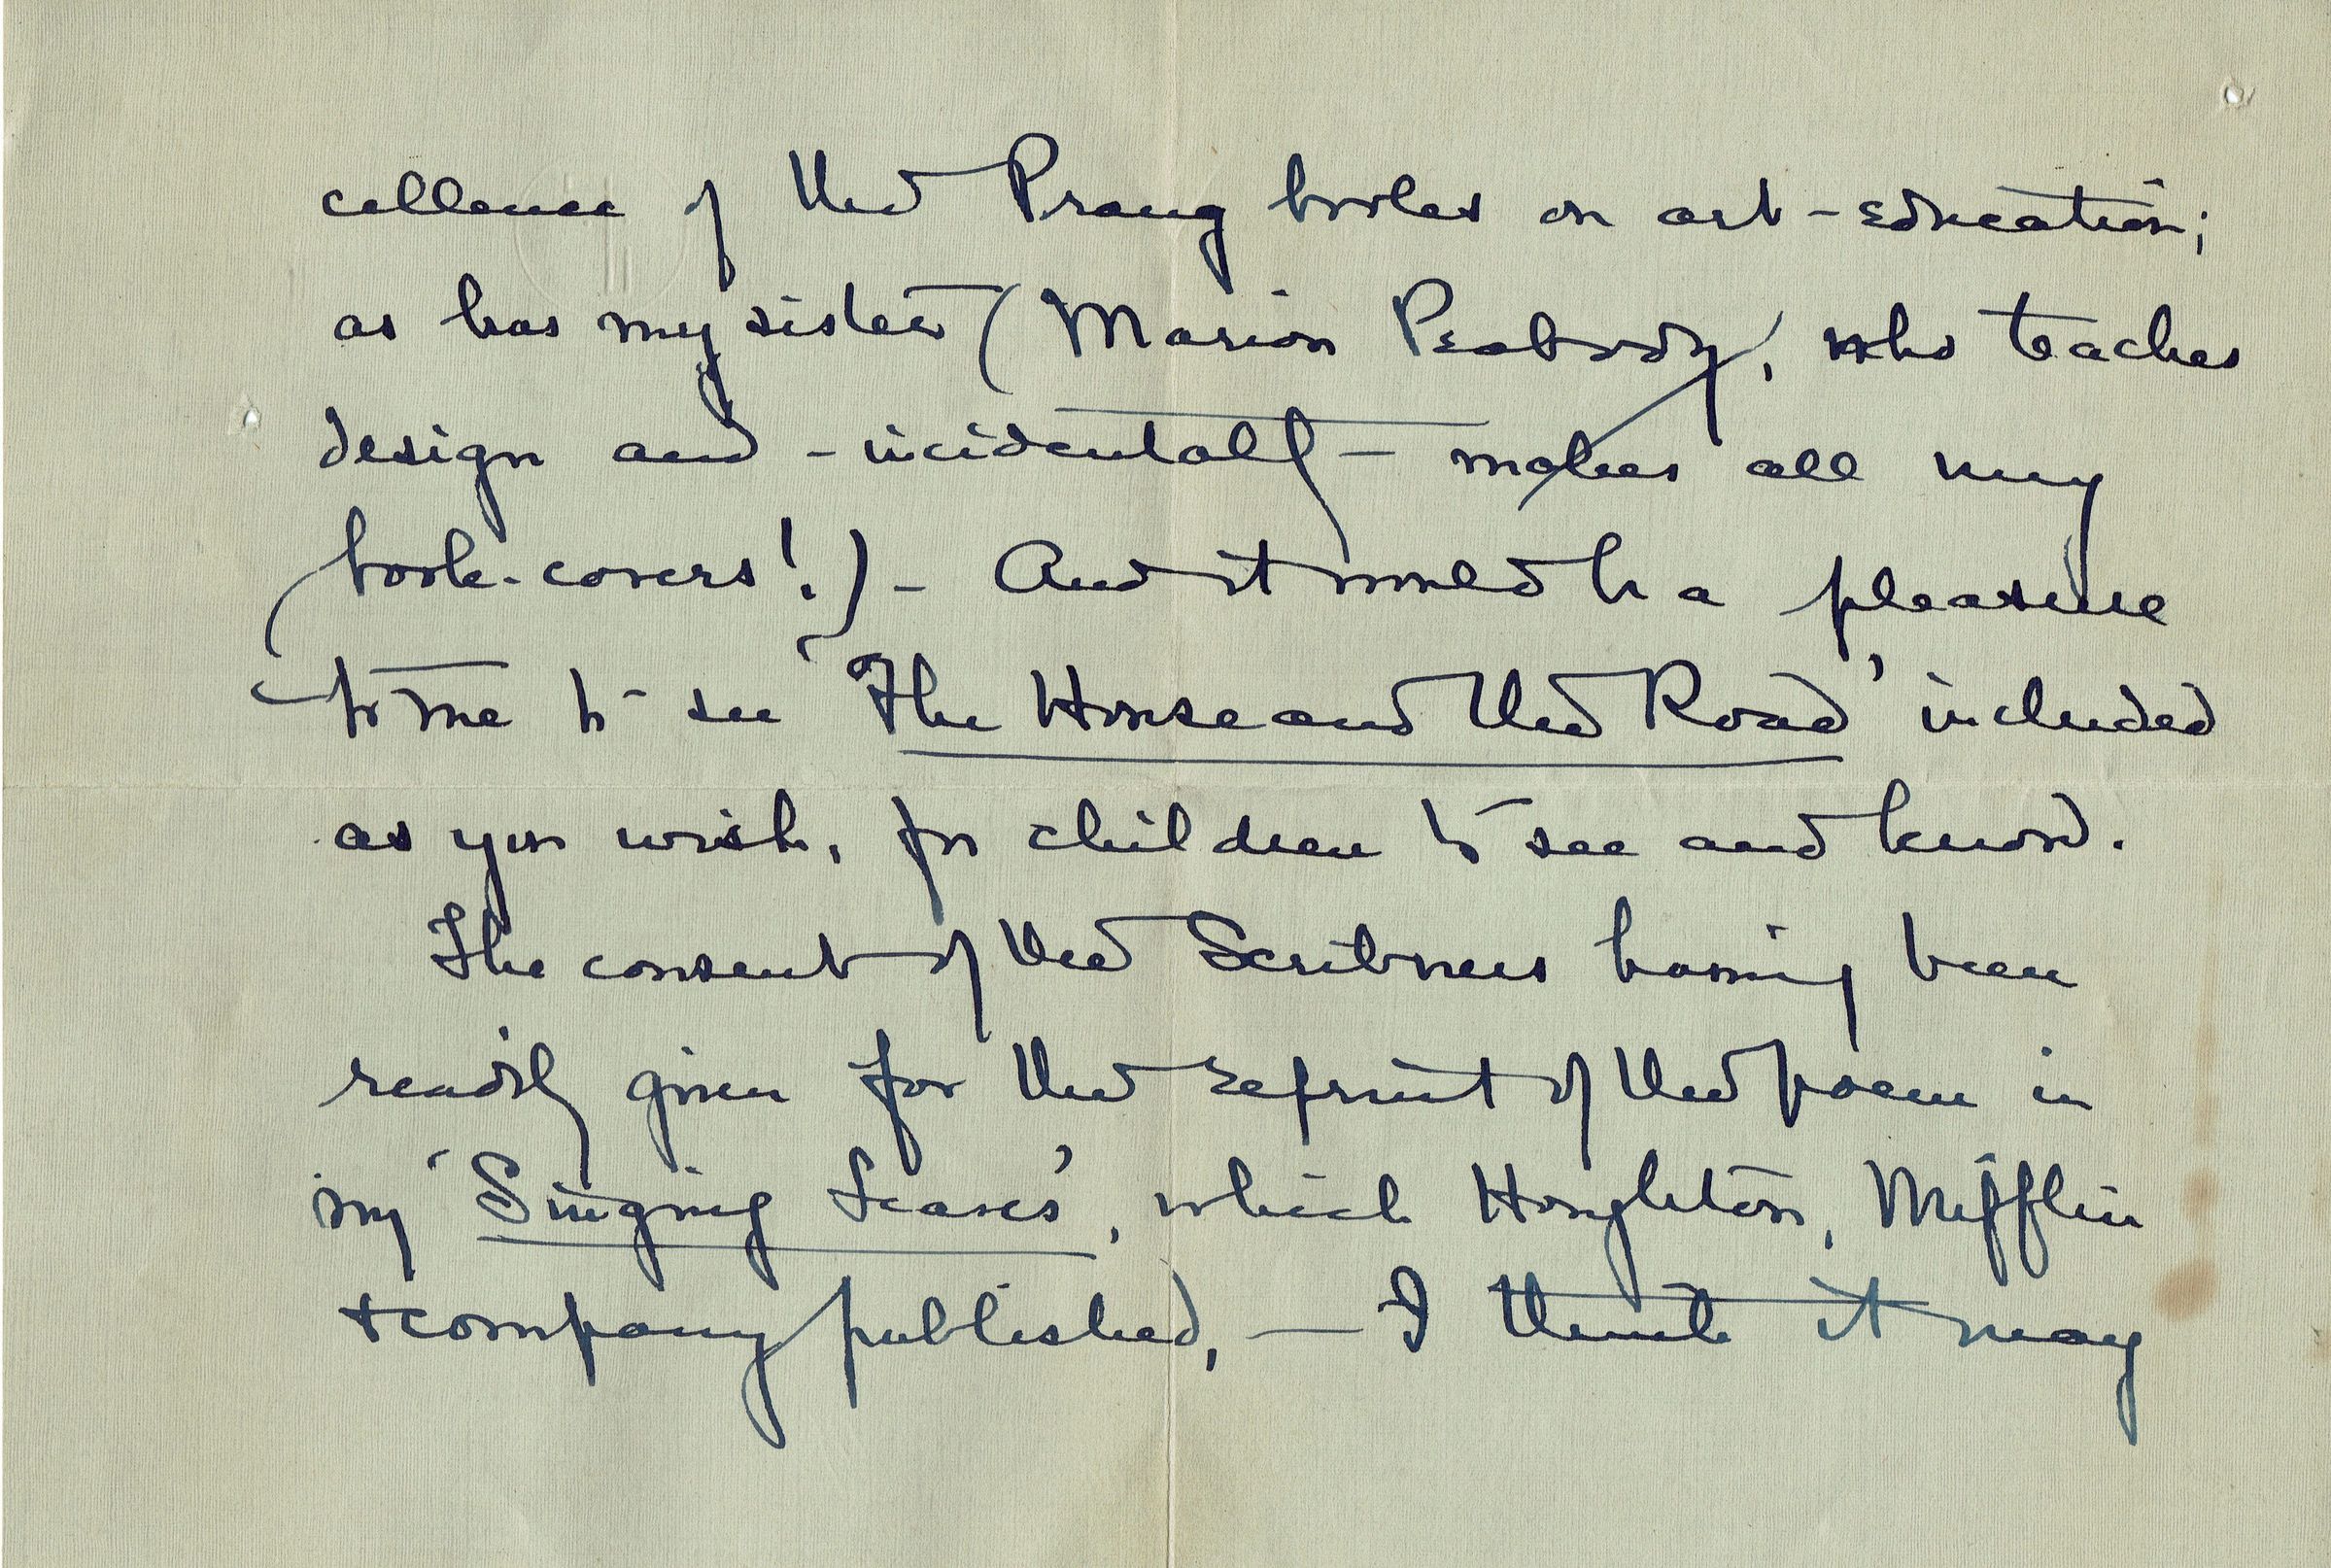 cellence of the Prang books on art-education;
as has my sister (Marion Peabody, who teaches
design and - incidentally - makes all my
book-covers!) - And it would be a pleasure
to me to see 'The House and the Road' included
as you wish, for children to see and know.
The consent of the Scribners having been
readily given for the reprint of the poem in
my 'Singing Leaves', which Houghton, Mifflin
& company published, — I think it may